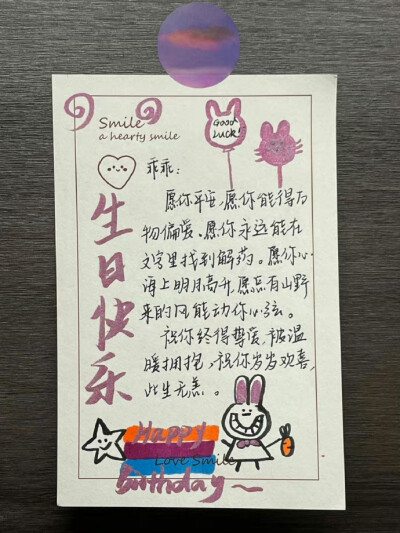 Smile
a hearty smile
Good
Luck!
生日快乐
乖乖:
愿你平安,愿你能得万
物偏爱、愿你永远能在
文字里找到解药。愿你心
海上明月高升,愿总有山野
来的风能动你心弦。
祝你终得挚爱,被温
暖拥抱,祝你岁岁欢喜,
此生无恙。
Happy
Love Smile
Birthday~